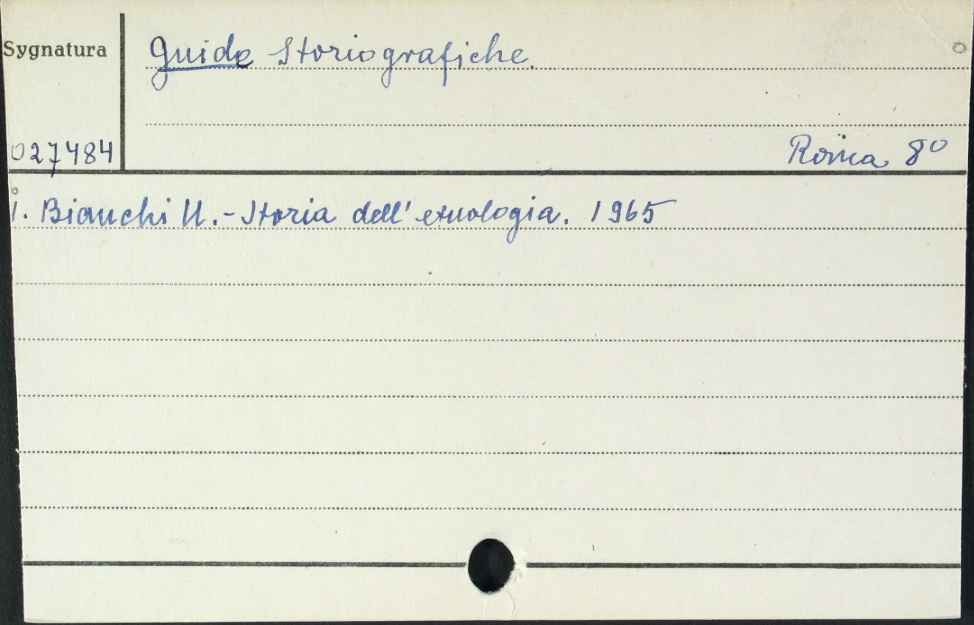 Sygnatura
Guide Storiografiche.
027484
Roma 8º
1. Bianchi U.-Storia dell'etnologia. 1965